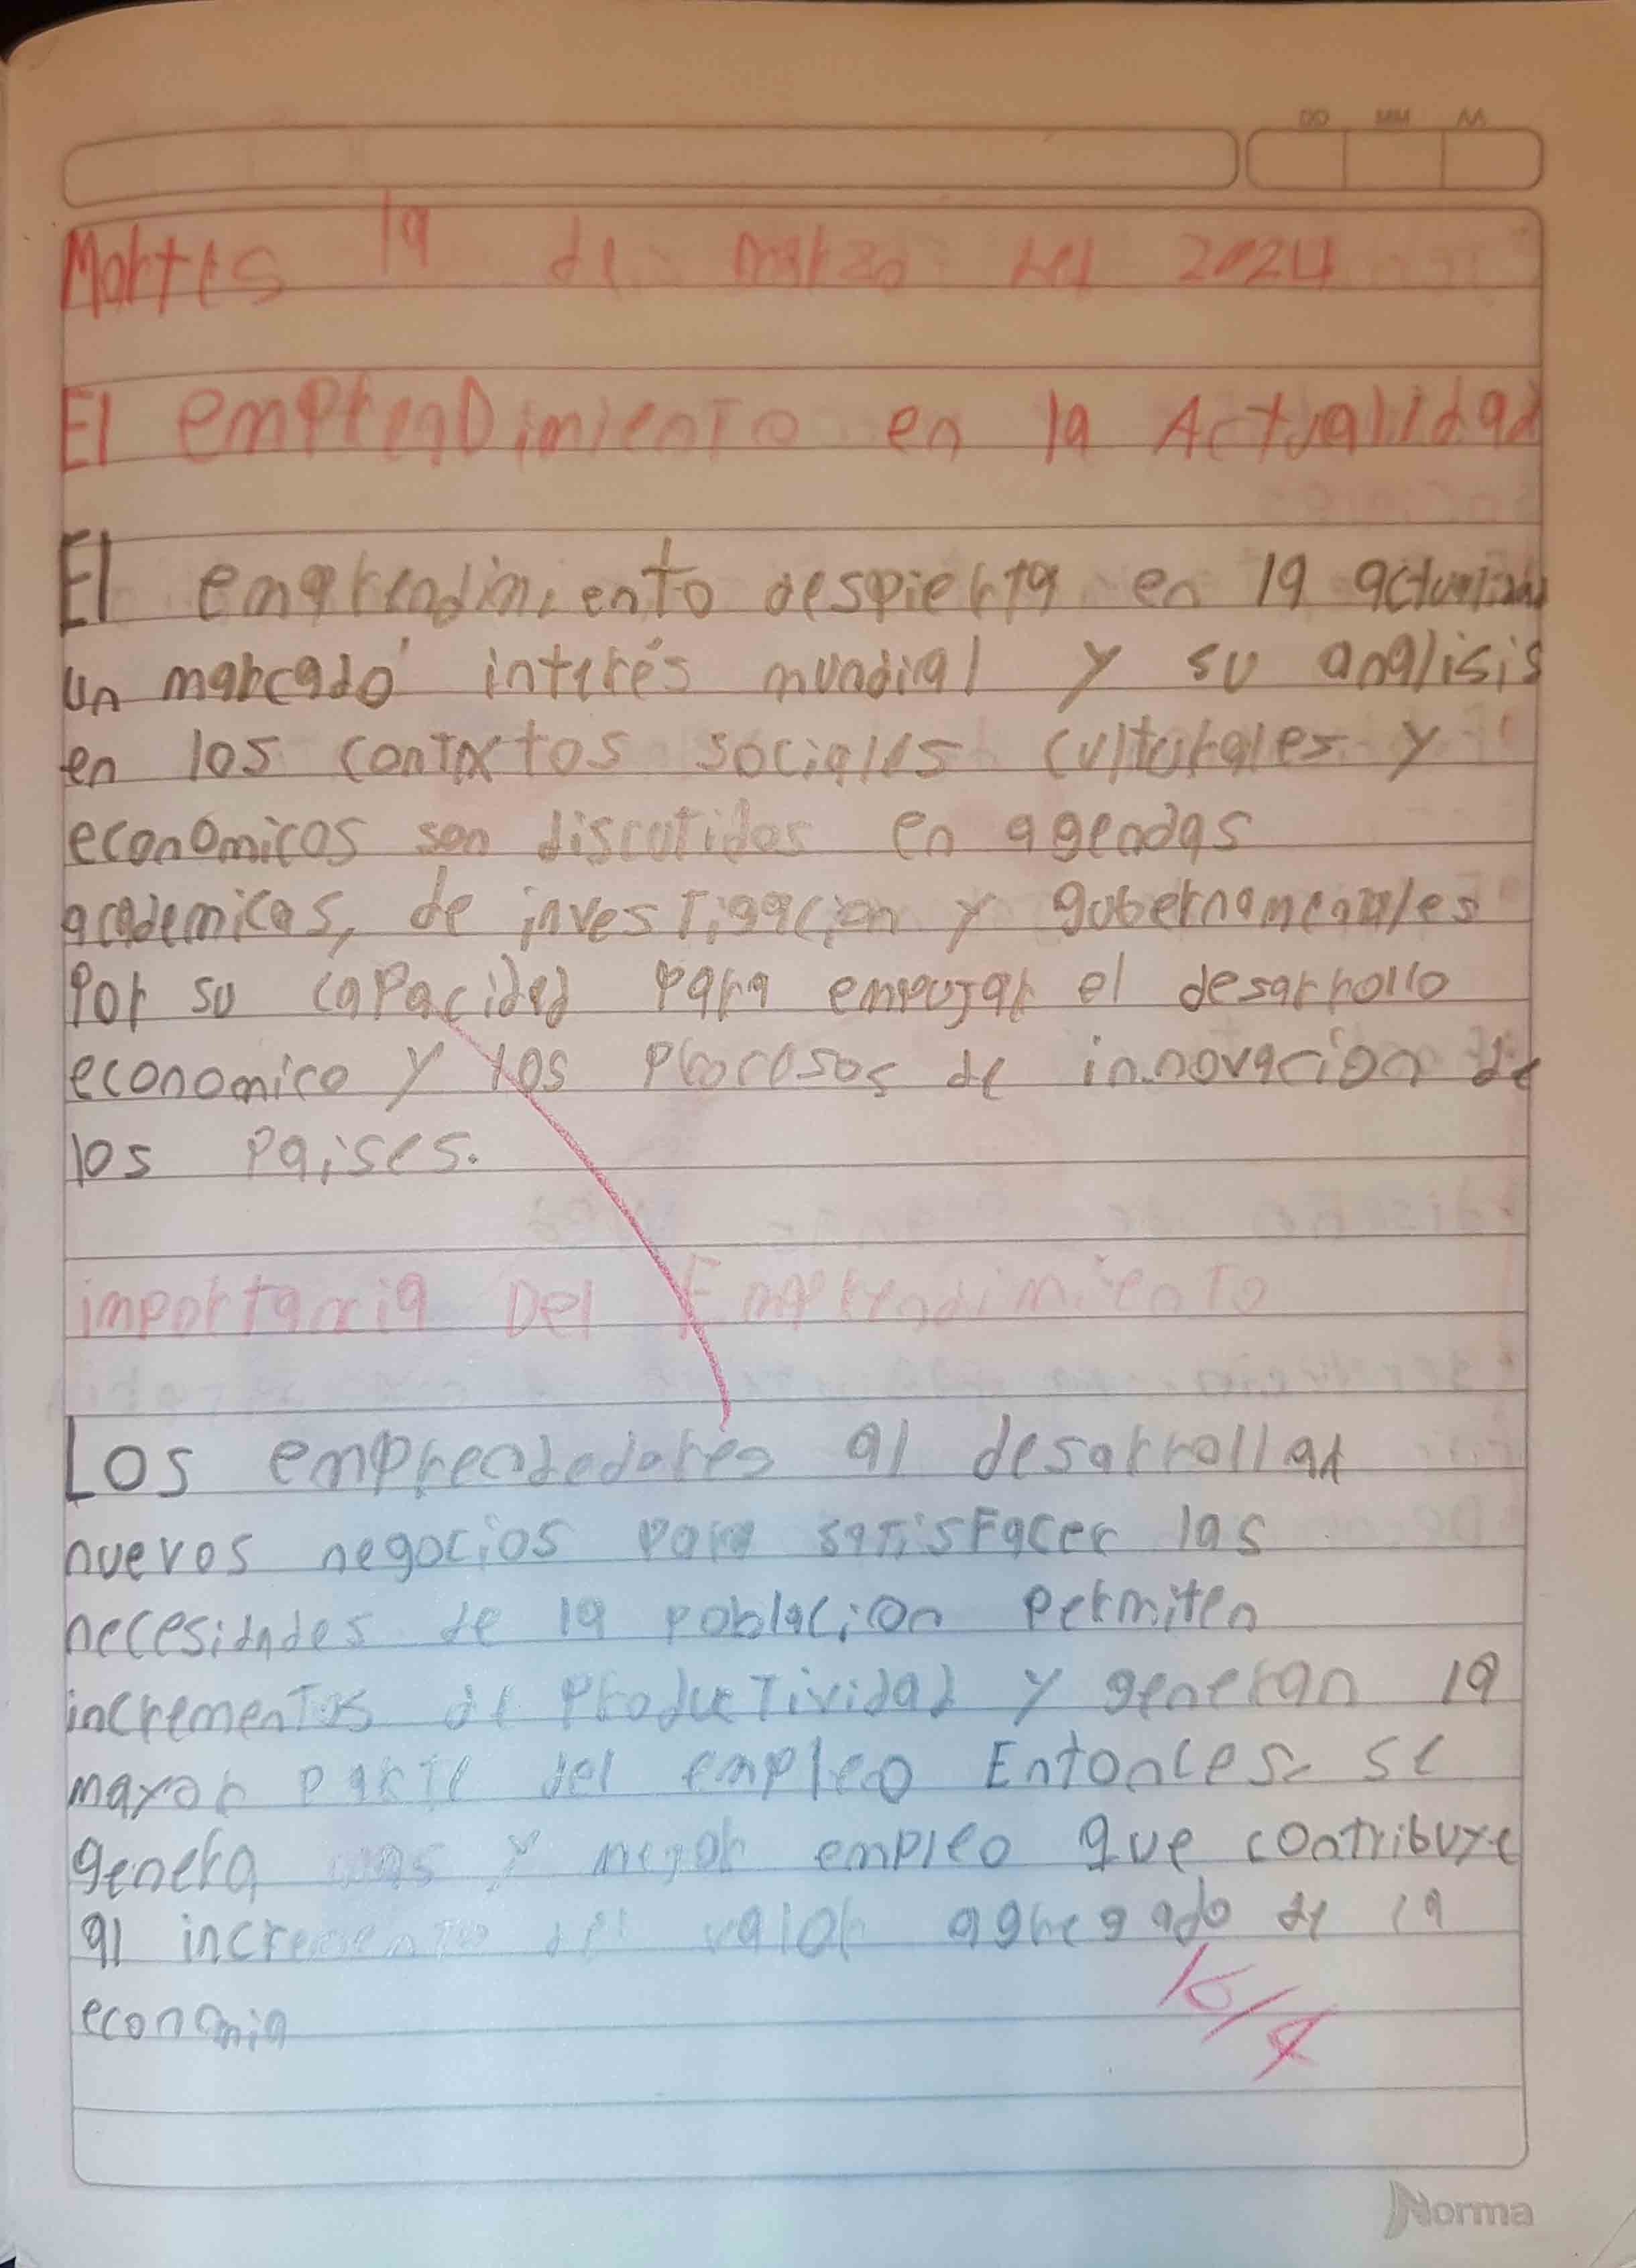 DD MM AA
Martes 19 de marzo del 2024
El emprenDimiento en la Actualidad
El emprendimiento despierta en la actualidad
un marcado interés mundial y su analisis
en los contextos sociales culturales y
económicos son discutidos en agendas
academicas, de investigacion y gubernamentales
Por su capacidad para empujar el desarrollo
economico y los procesos de innovacion de
los paises.
importancia Del Emprendimiento
Los emprendedores al desarrollar
nuevos negocios para satisfacer las
necesidades de la poblacion permiten
incrementos de productividad y generan la
mayor parte del empleo Entonces se
genera mas y mejor empleo que contribuye
al incremento del valor agregado de la
economia
Norma